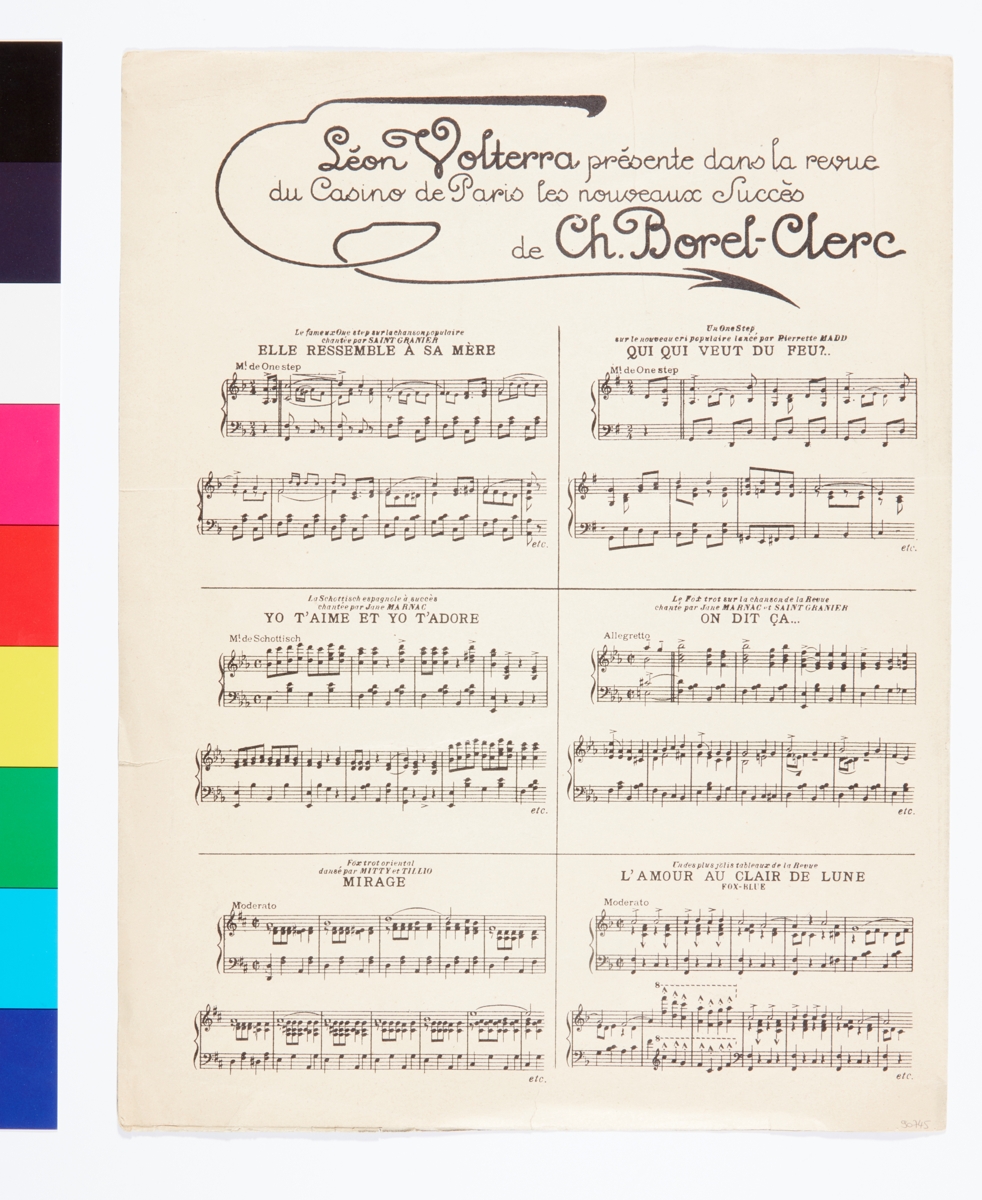 Léon Volterra présente dans la revue
du Casino de Paris les nouveaux Succès
de Ch. Borel-Clerc
Le fameux One step sur la chanson populaire
chantée par SAINT GRANIER
ELLE RESSEMBLE À SA MÈRE
Mt de One step
etc.
Un One Step
sur le nouveau cri populaire lancé par Pierrette MADD
QUI QUI VEUT DU FEU?..
Mt de One step
etc.
La Schottisch espagnole à succès
chantée par Jane MARNAC
YO T'AIME ET YO T'ADORE
Mt de Schottisch
etc.
Le Fox trot sur la chanson de la Revue
chanté par Jane MARNAC et SAINT GRANIER
ON DIT ÇA...
Allegretto
etc.
Fox trot oriental
dansé par MITTY et TILLIO
MIRAGE
Moderato
etc.
Un des plus jolis tableaux de la Revue
L'AMOUR AU CLAIR DE LUNE
FOX-BLUE
Moderato
8
8
etc.
90745